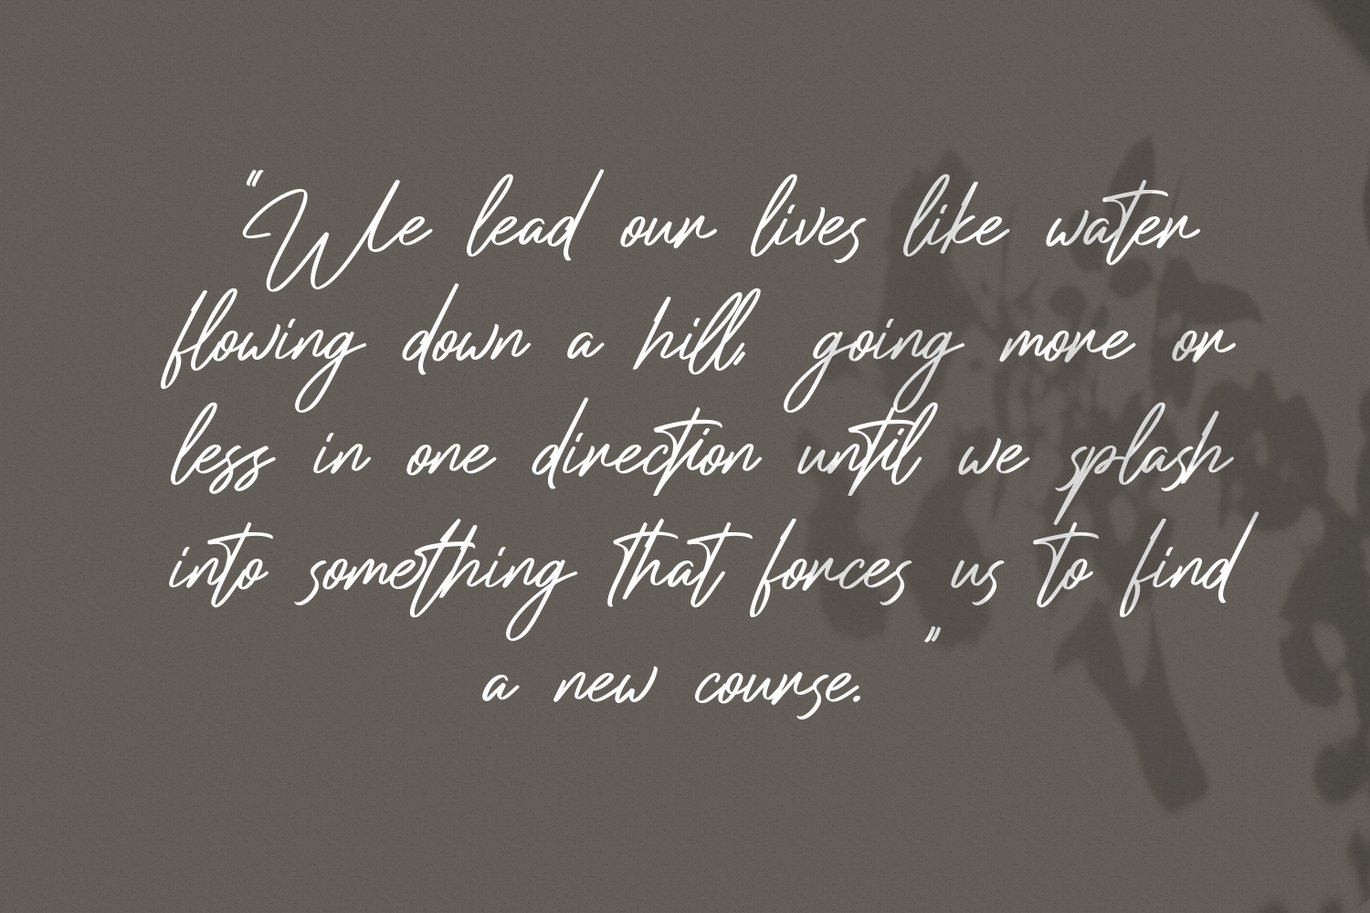 "We lead our lives like water
flowing down a hill, going more or
less in one direction until we splash
into something that forces us to find
a new course."